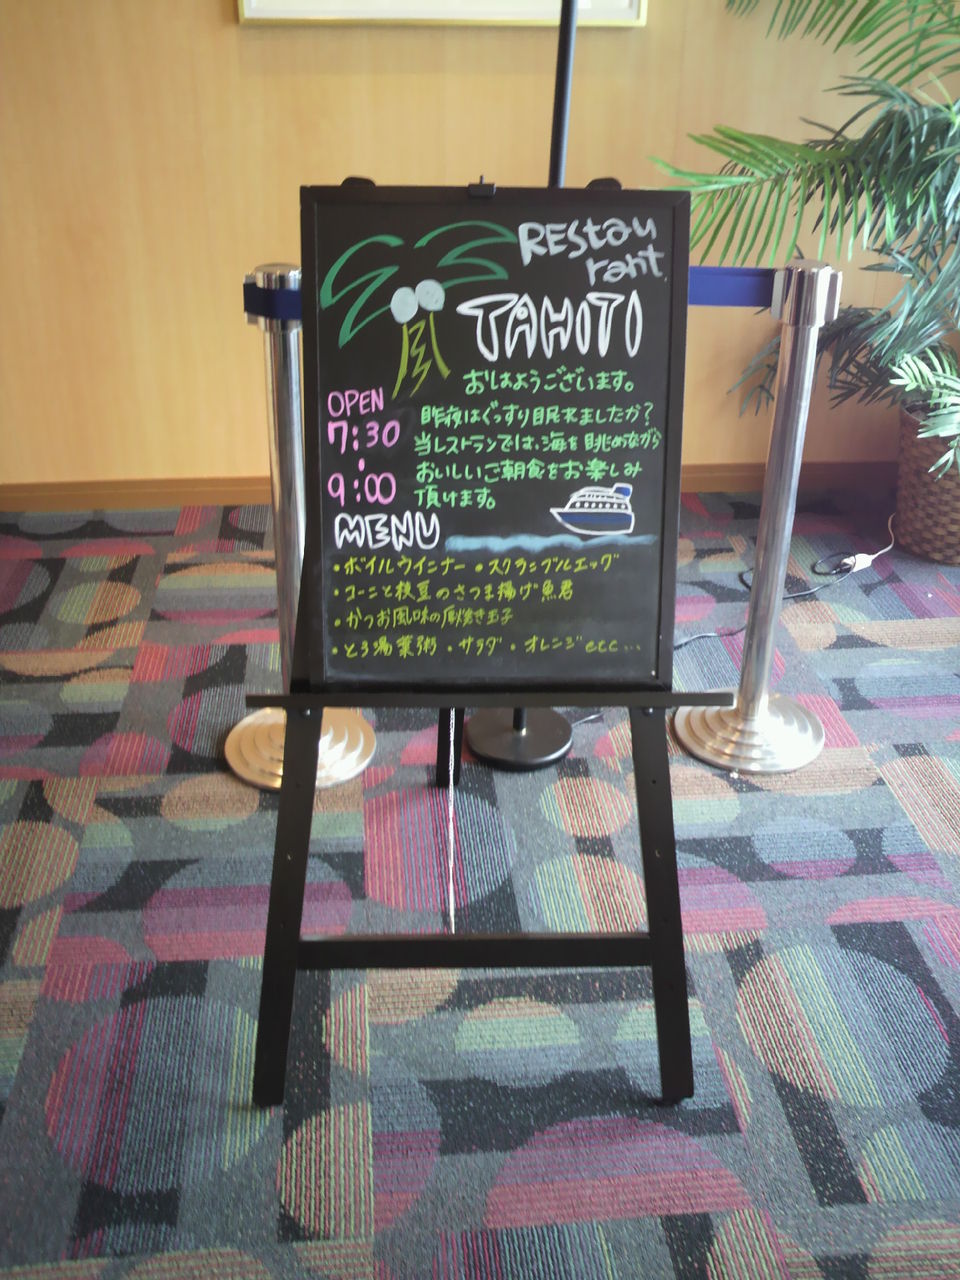 REStau
rant
TAHITI
おはようございます。
OPEN
7:30
9:00
昨夜はぐっすり眠れましたか?
当レストランでは、海を眺めながら
おいしいご朝食をお楽しみ
頂けます。
MENU
・ボイルウインナー ・スクランブルエッグ
・コーンと枝豆のさつま揚げ 魚君
・かつお風味の厚焼き玉子
・とろ湯葉粥 ・サラダ ・オレンジ ecc...